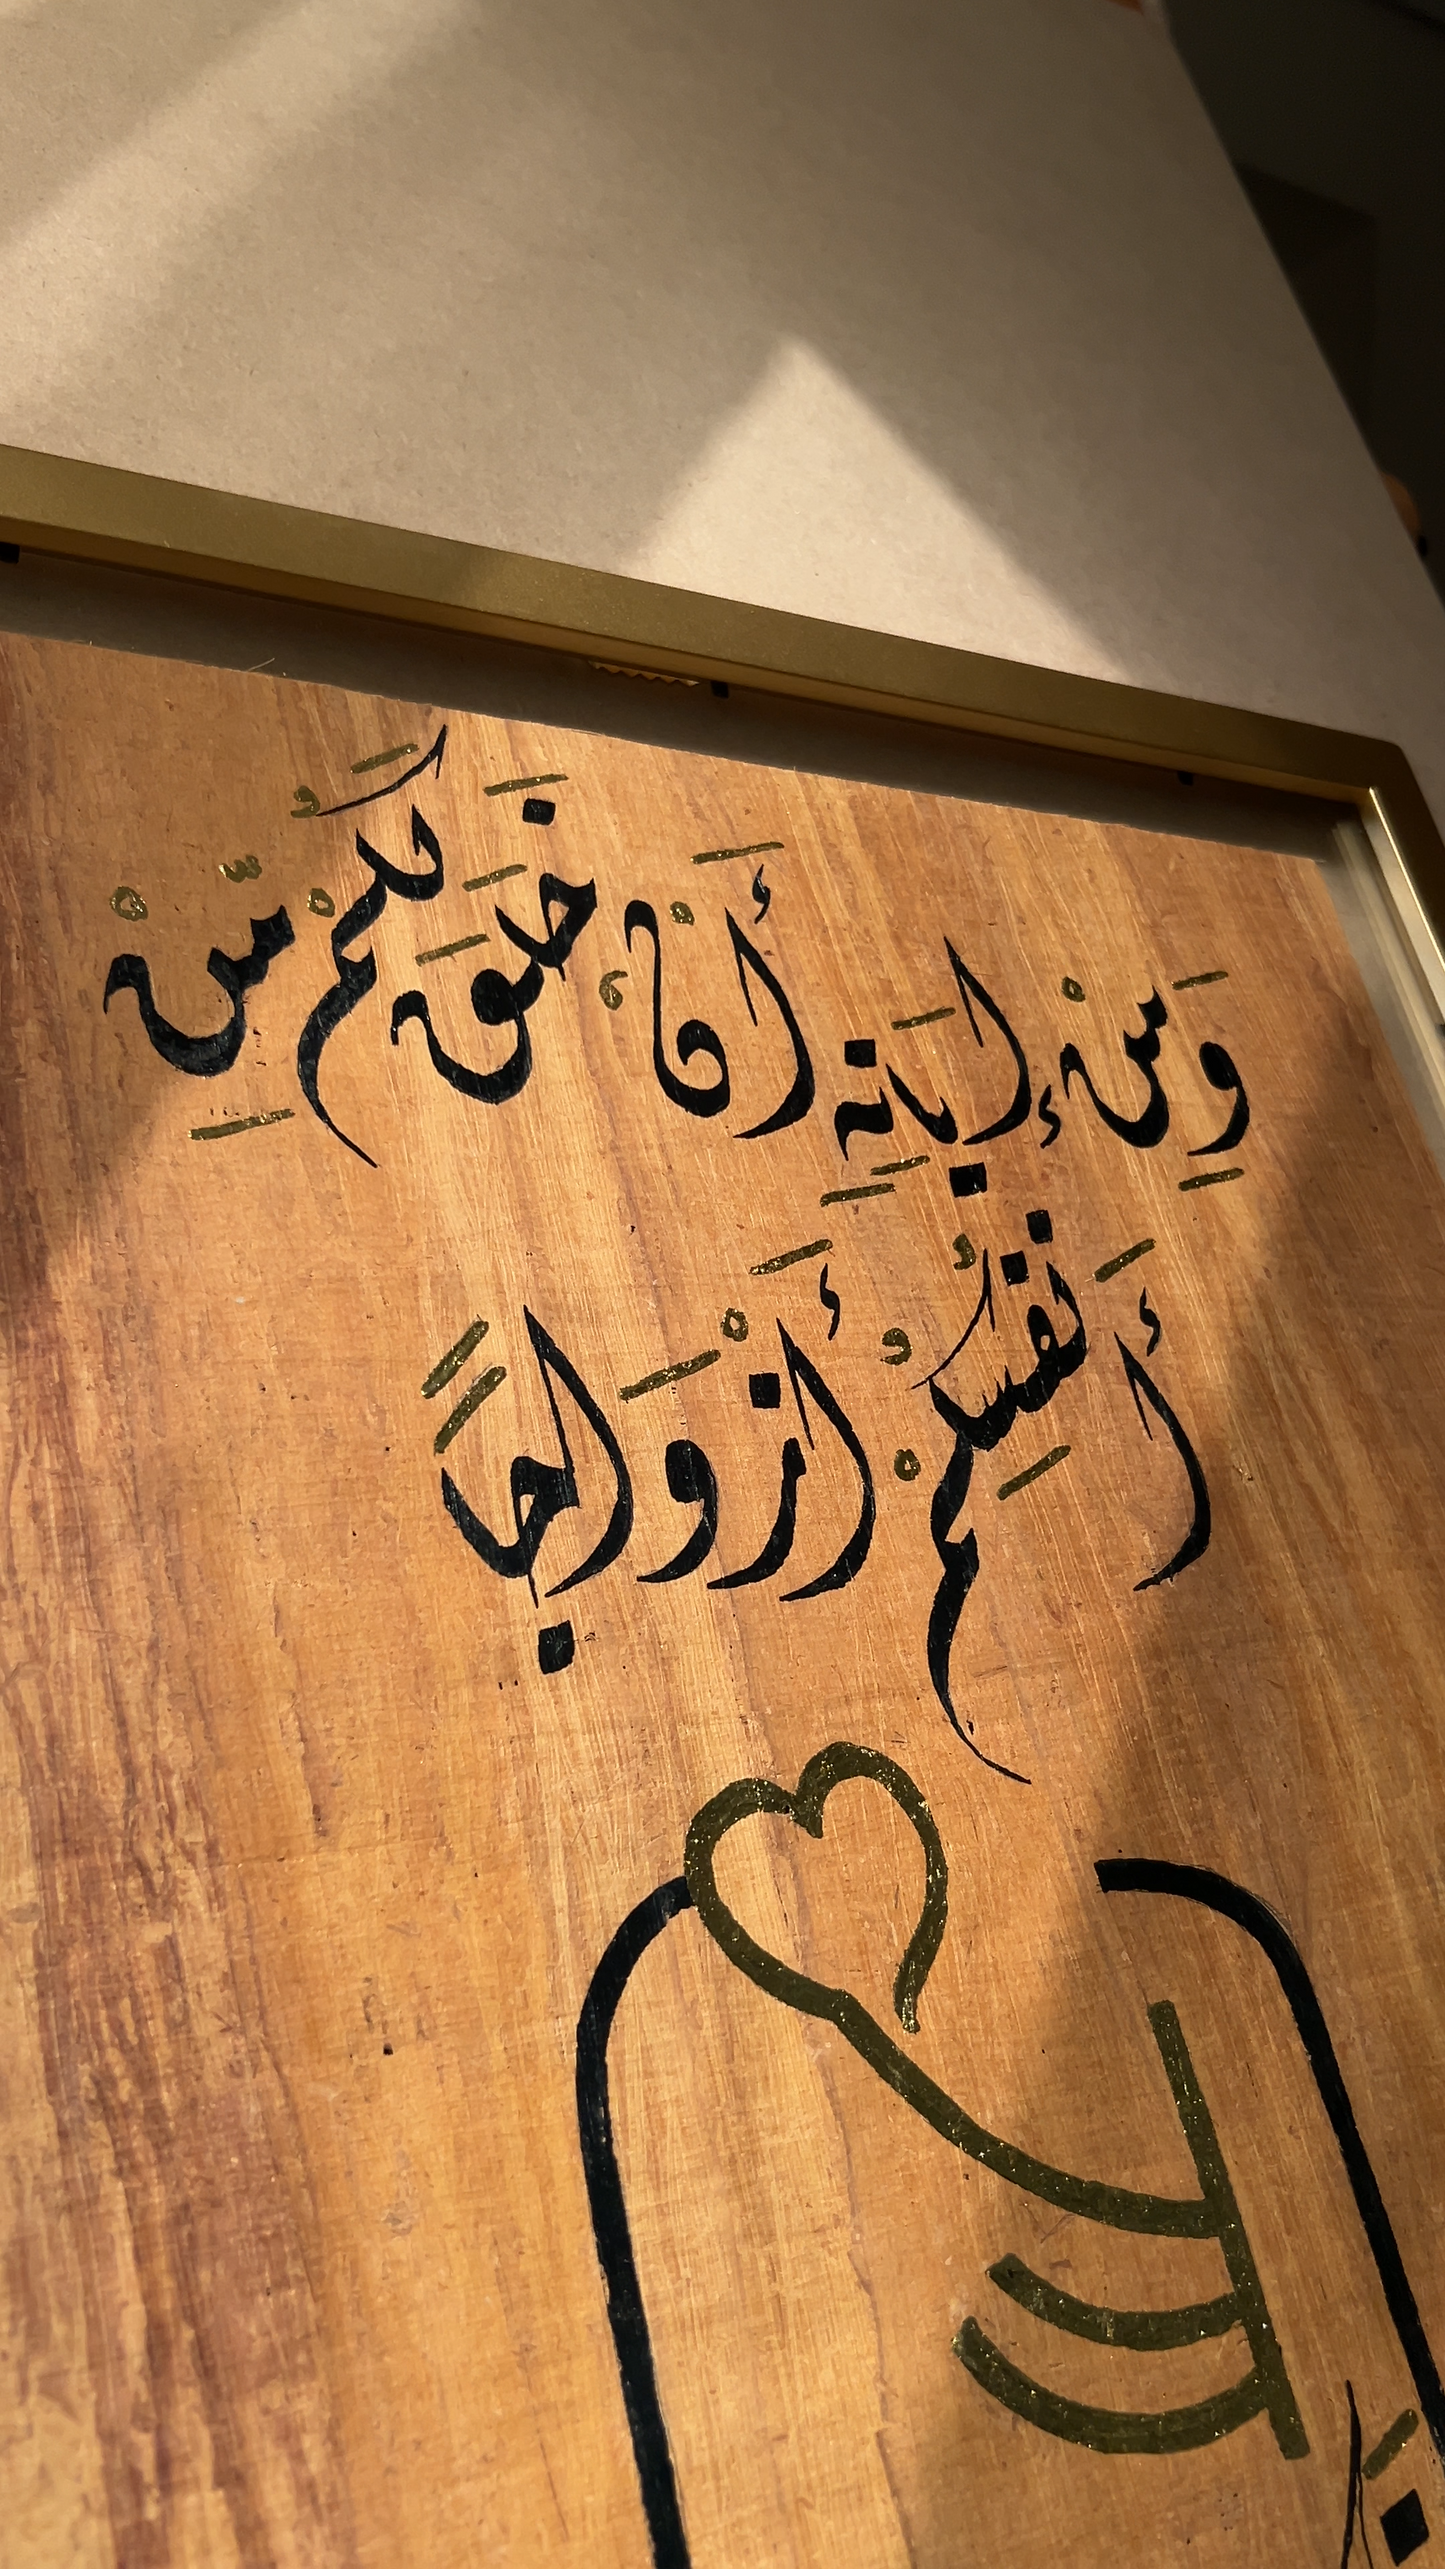 وَمِنْ ءَايَاتِهِ أَنْ خَلَقَ لَكُم مِّنْ
أَنفُسِكُمْ أَزْوَاجًا